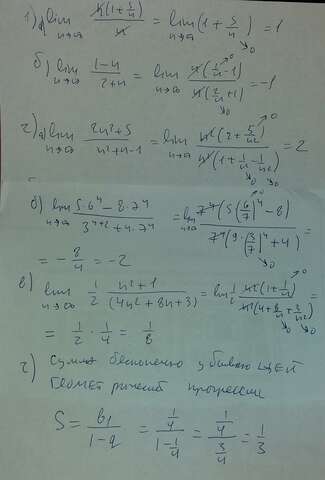 1) а) lim n→∞ n(1+5/n)/n = lim n→∞ (1+5/n) = 1
→0
б) lim n→∞ (1-n)/(2+n) = lim n→∞ n(1/n-1)/n(2/n+1) = -1
2) а) lim n→∞ (2n²+5)/(n²+n-1) = lim n→∞ n²(2+5/n²)/n²(1+1/n-1/n²) = 2
б) lim n→∞ (5·6ⁿ-8·7ⁿ)/(3ⁿ⁺²+4·7ⁿ) = lim n→∞ 7ⁿ(5(6/7)ⁿ-8)/7ⁿ(9·(3/7)ⁿ+4) =
= -8/4 = -2
в) lim n→∞ 1/2 (n²+1)/(4n²+8n+3) = lim 1/2 n²(1+1/n)/n²(4+8/n+3/n²) =
= 1/2 · 1/4 = 1/8
г) Сумма бесконечно убывающей
геометрической прогрессии
S = b₁/(1-q) = (1/4)/(1-1/4) = (1/4)/(3/4) = 1/3